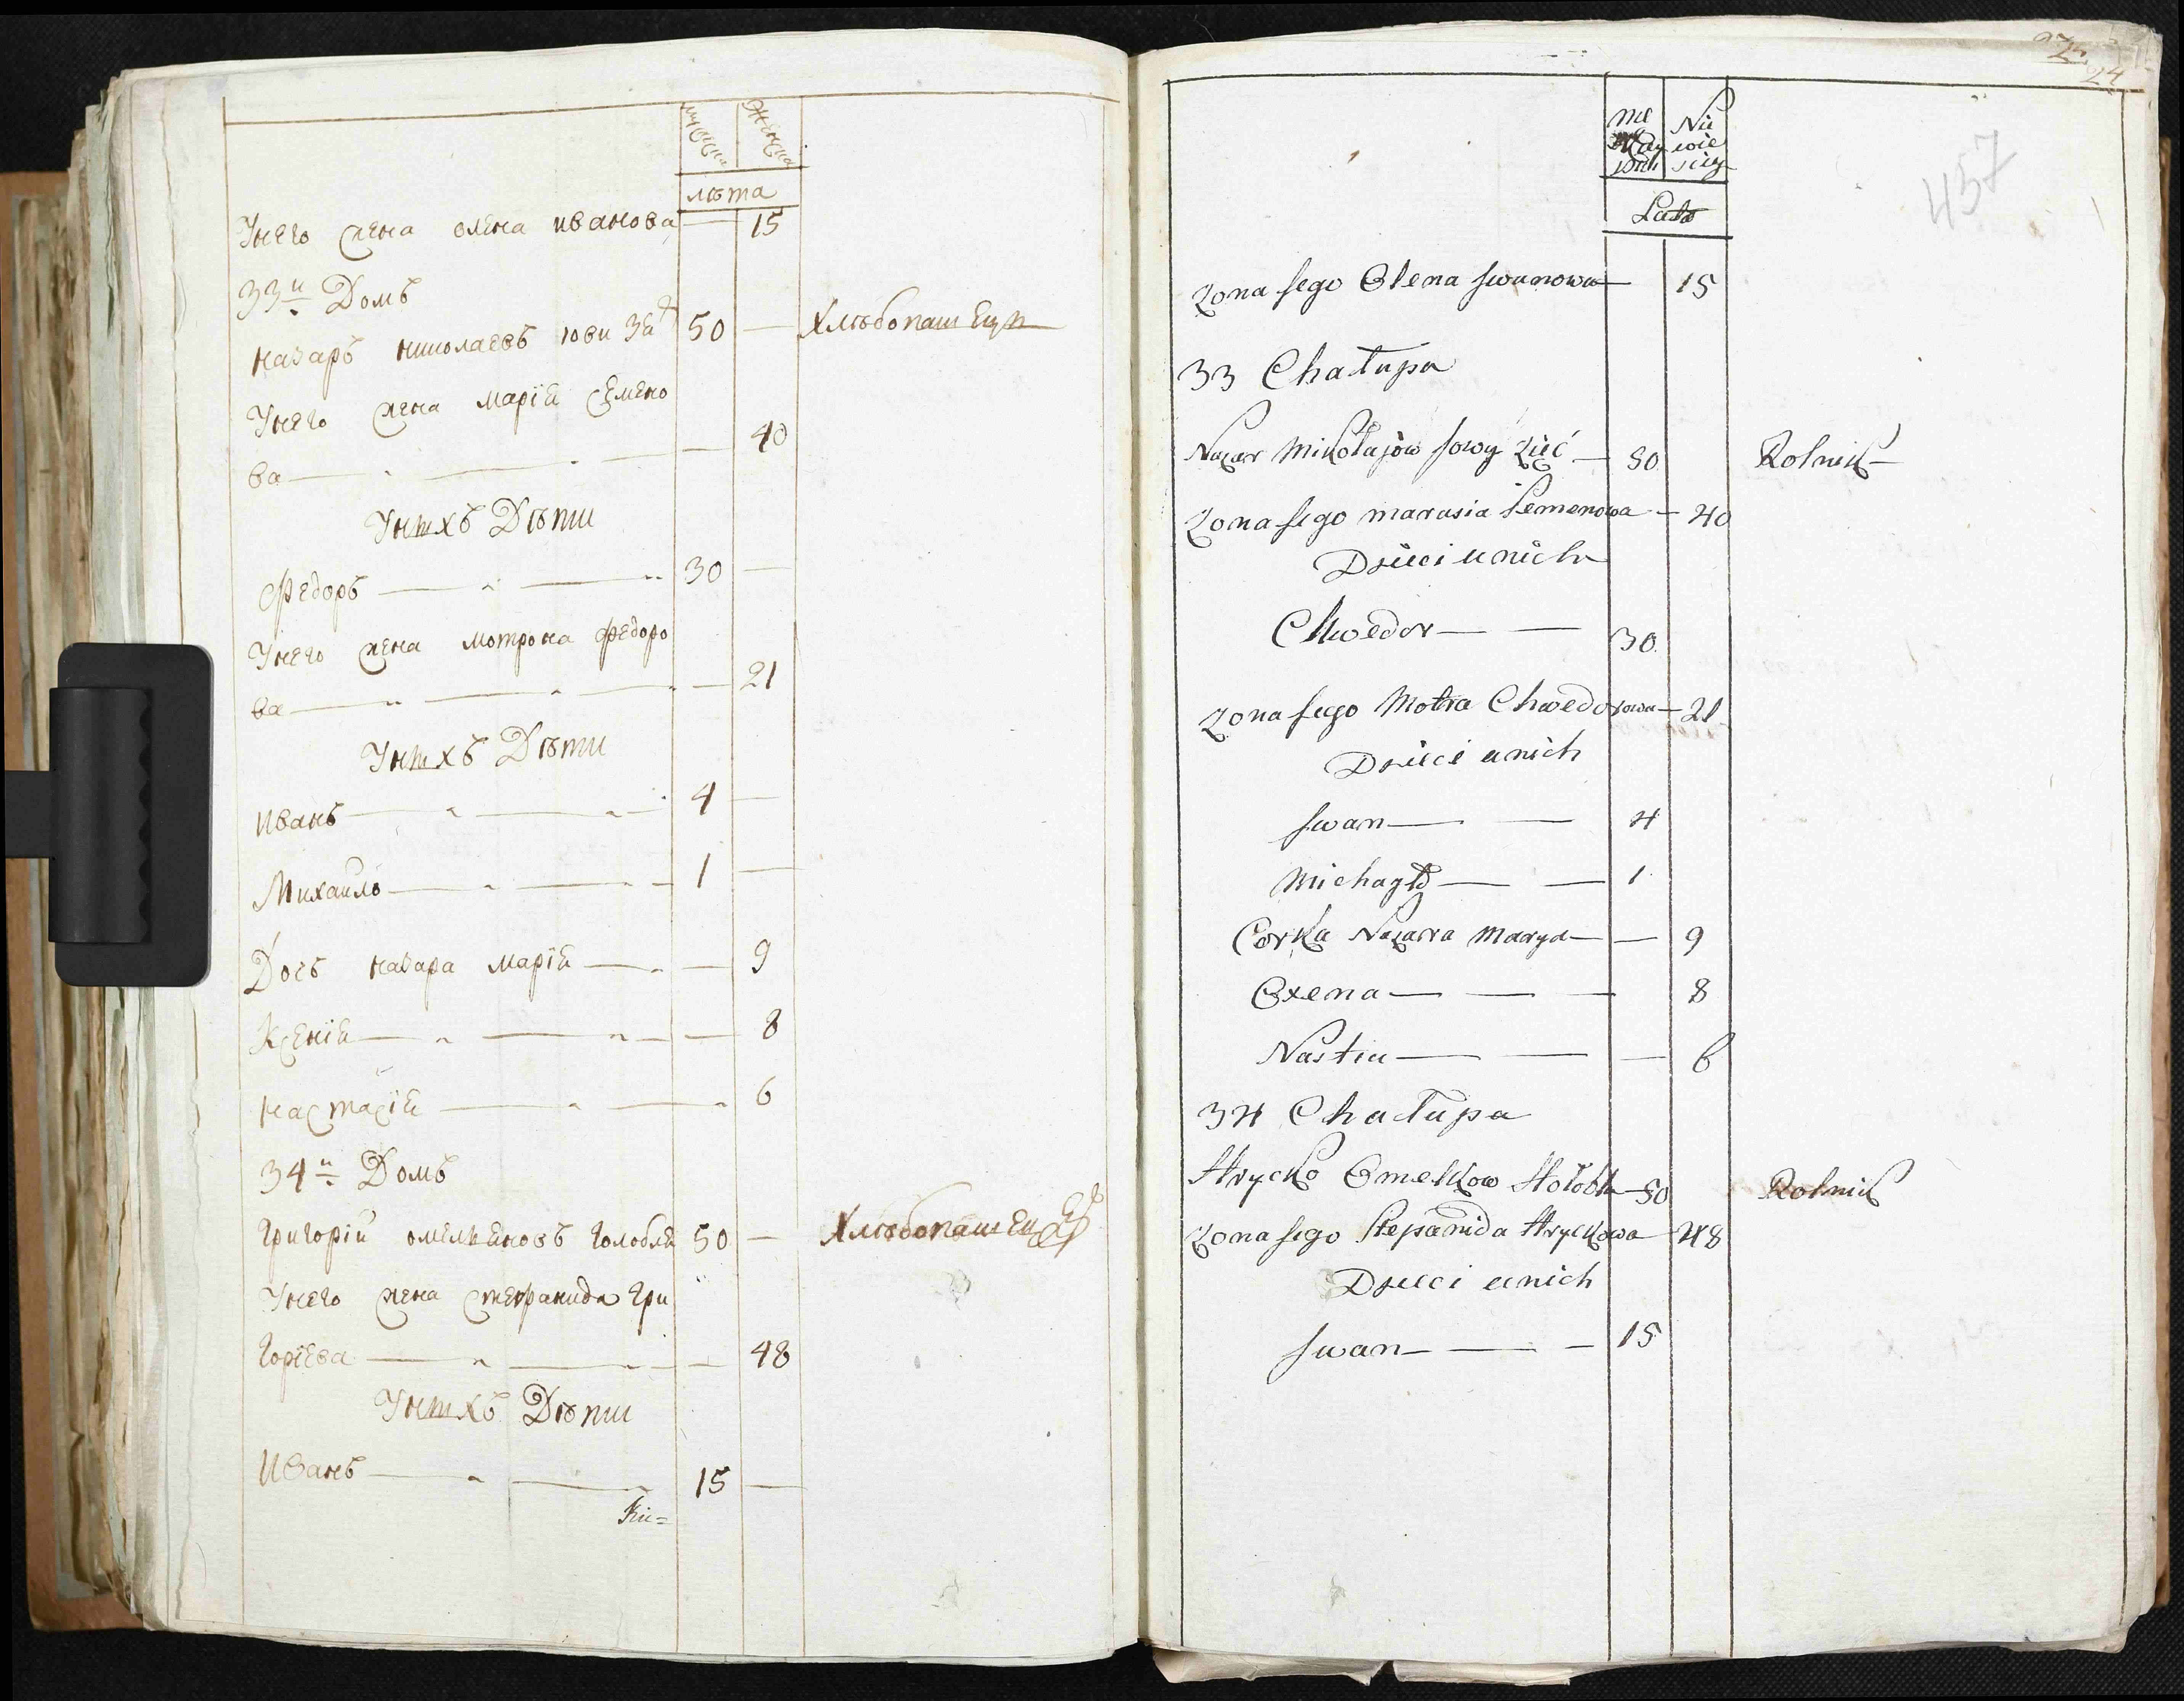 мужеска женска
лѣта
У него жена олена иванова — 15
33й Домъ
назаръ николаевъ юви зя 50 — Хлѣбопашецъ
У него жена марія семено
ва — 40
У нихъ Дѣти
Федоръ — 30 —
У него жена мотрона федоро
ва — 21
У нихъ Дѣти
Иванъ — 4 —
Михайло — 1 —
Дочь назара марія — 9
Ксенія — 8
настасія — 6
34й Домъ
Григорій омельяновъ голобля 50 — Хлѣбопашецъ
У него жена стефанида гри
горіева — 48
У нихъ Дѣти
Иванъ — 15 —
24
457
Nie
wie
sciey
Lata
Zona jego Olena Jwanowa — 15
33 Chałupa
Nazar Mikołajow Jowy Zięć — 50 Rolnik
Zona jego marusia Semenowa — 40
Dzieci u nich
Chwedor — — 30
Zona jego Motra Chwedorowa — 21
Dzieci u nich
Jwan — — 4
Michayło — — 1
Corka Nazara Marya — — 9
Oxena — — — 8
Nastia — — — 6
34 Chałupa
Hrycko Omelkow Hołobla — 50 Rolnik
Zona jego Stepanida Hryckowa 48
Dzieci u nich
Jwan — — — 15